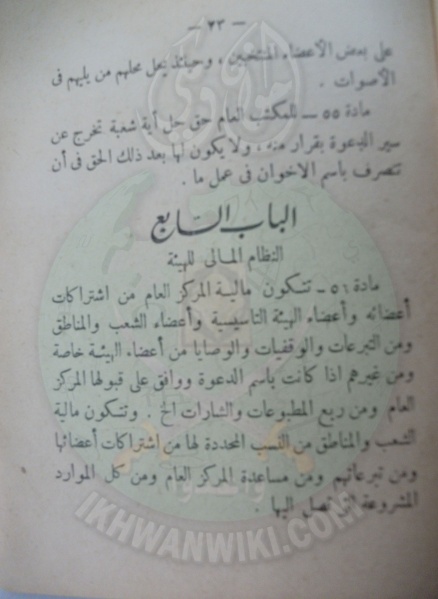 — ٢٣ —
على بعض الأعضاء المنتخبين ، وحينئذ يحل محلهم من يليهم فى
الأصوات .
مادة ٥٥ — للمكتب العام حق حل أية شعبة تخرج عن
سير الدعوة بقرار منه ، ولا يكون لها بعد ذلك الحق فى أن
تتصرف باسم الاخوان فى عمل ما .
الباب السابع
النظام المالى للهيئة
مادة ٥٤ — تتكون مالية المركز العام من اشتراكات
أعضائه وأعضاء الهيئة التاسيسية وأعضاء الشعب والمناطق
ومن التبرعات والوقفيات والوصايا من أعضاء الهيئة خاصة
ومن غيرهم اذا كانت باسم الدعوة ووافق على قبولها المركز
العام ومن ريع المطبوعات والشارات الخ . وتتكون مالية
الشعب والمناطق من النسب المحددة لها من اشتراكات أعضائها
ومن تبرعاتهم ومن مساعدة المركز العام ومن كل الموارد
المشروعة اليها .
IKHWANWIKI.COM